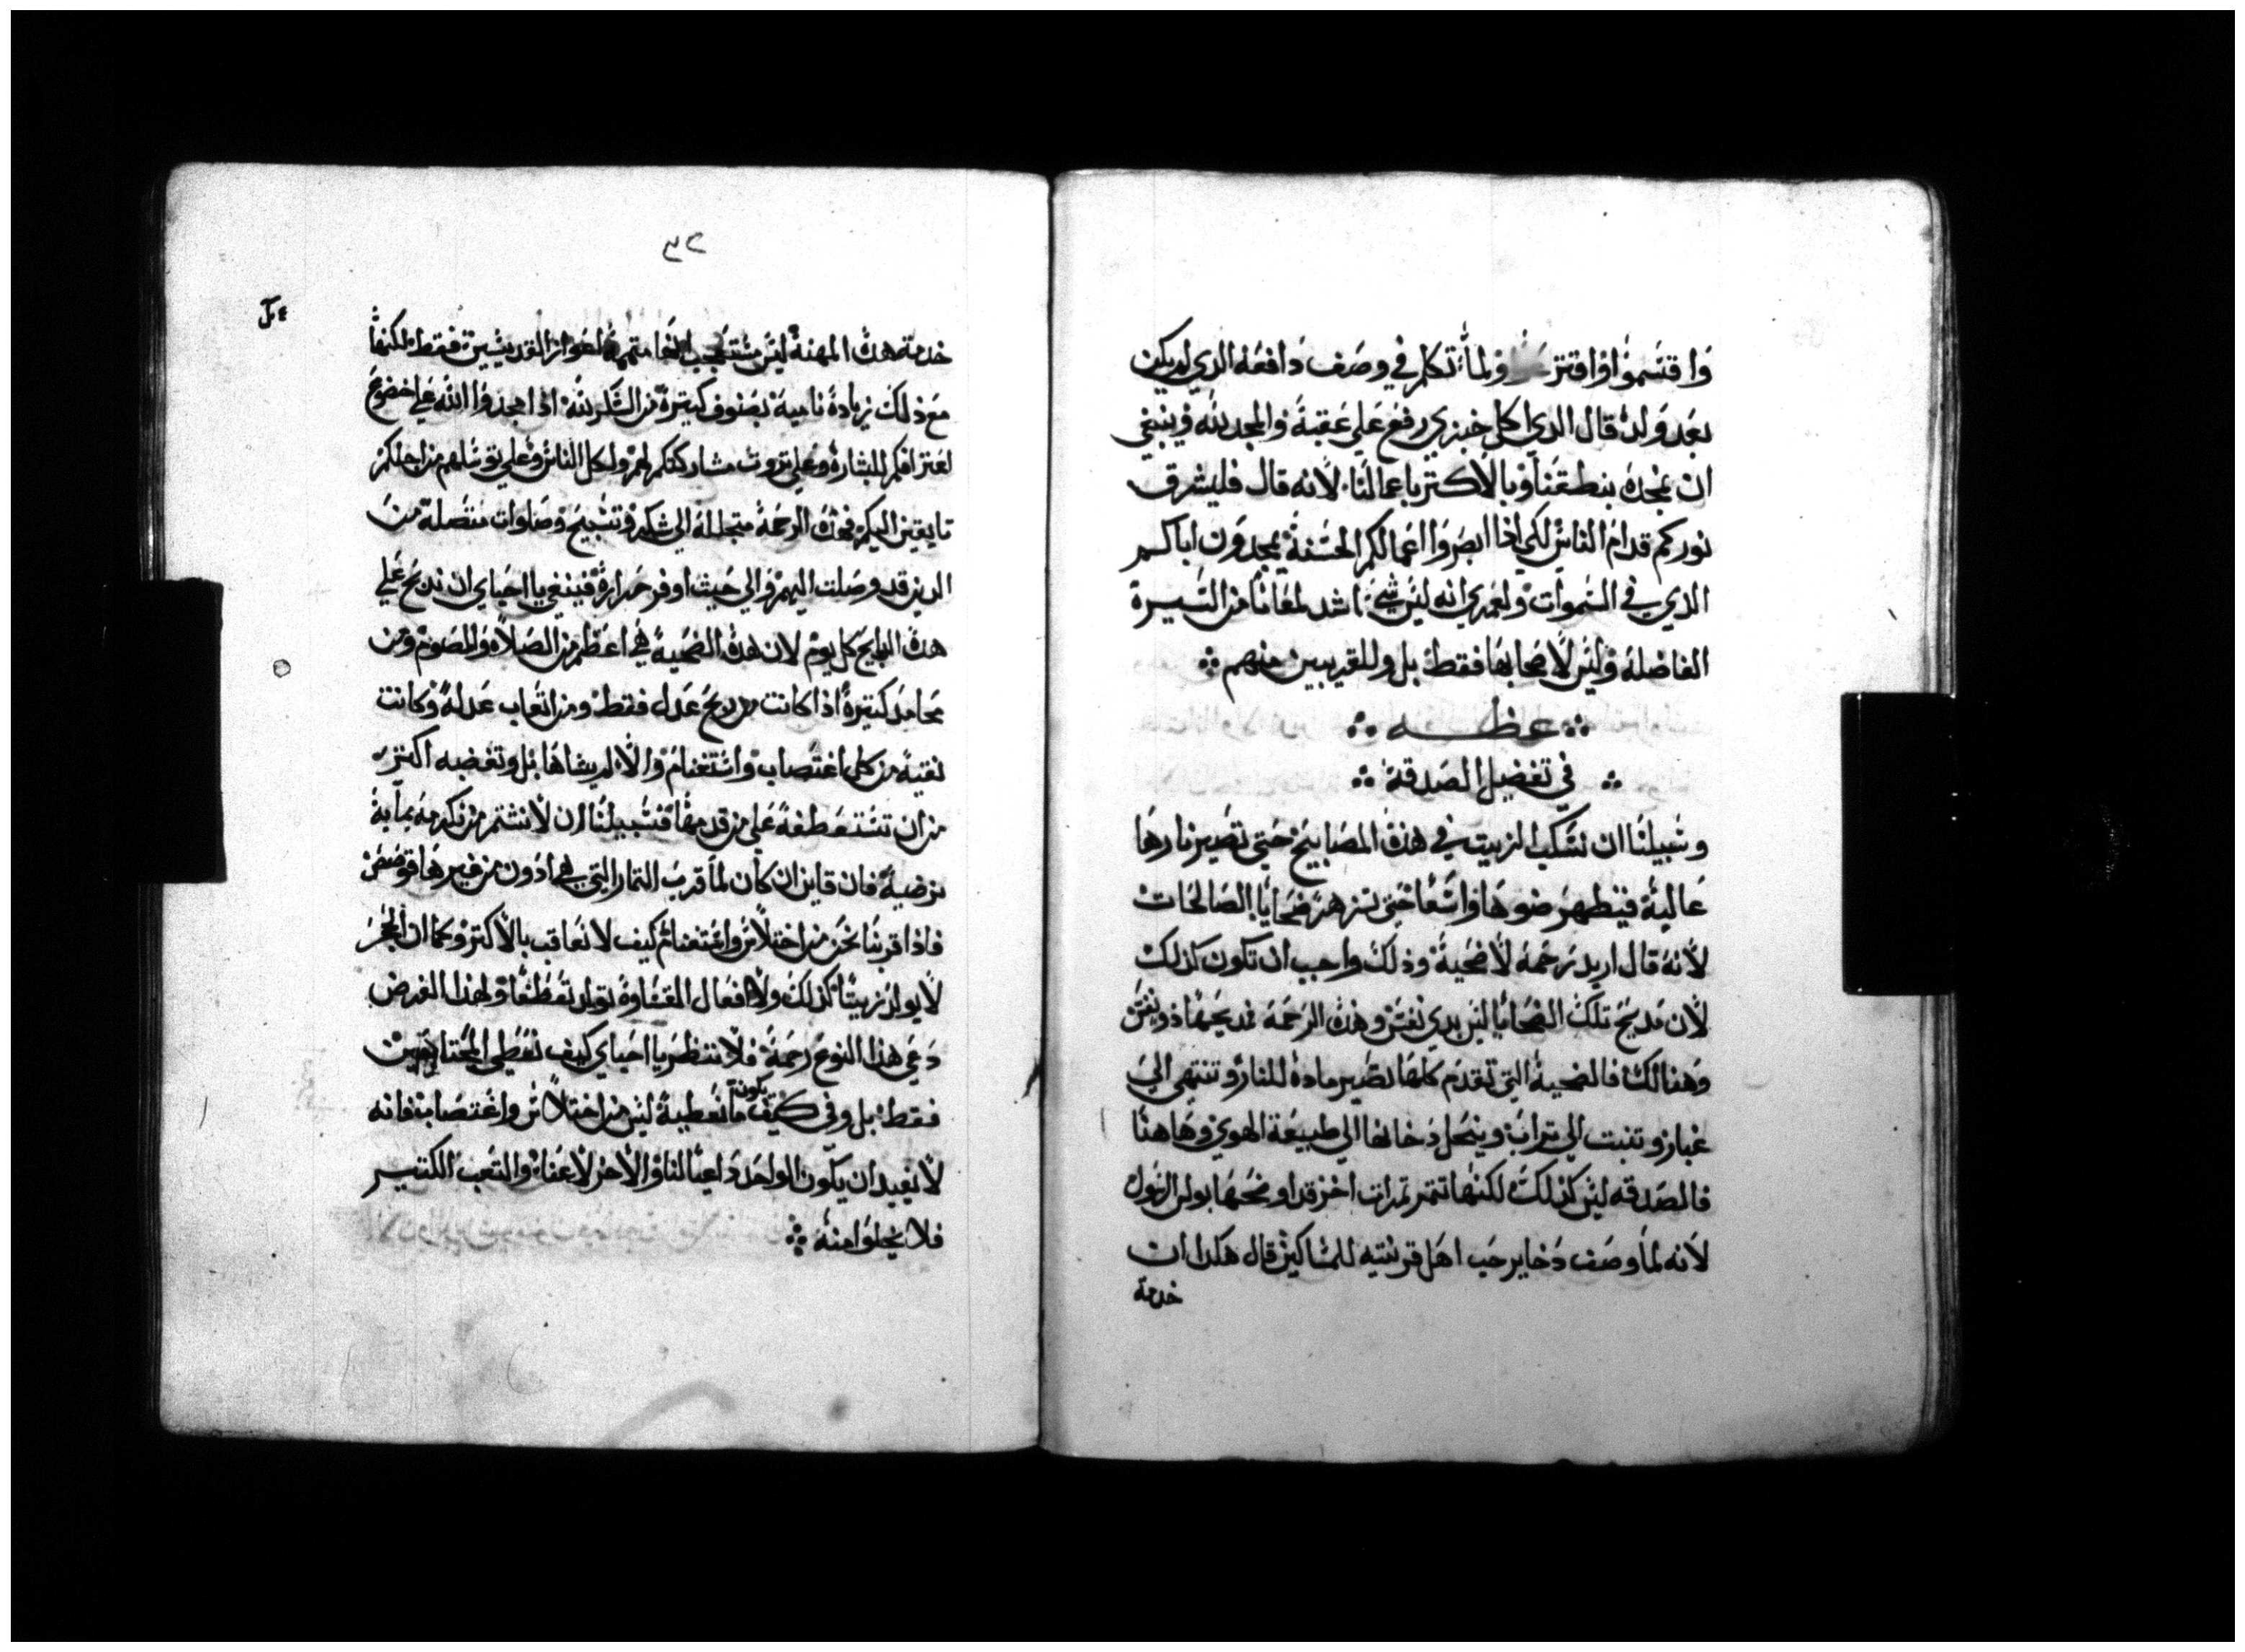 وَاقتسَموُا واقترعَوا ولمَا تكلم في وصَف دَافعَه الدي لم يكن
بعَد وَلد قال الدي اكل خبزي رفعَ عَلي عَقبهَ والمجد لله وينبغي
ان نمجدهَ بنطقنَا وبالاكتر باعمالنَا لانه قال فليشرق
نوركم قدام الناسَ لكي ادا ابصَروَا اعمَالكم الحسَنةَ يمجدوَن اباكم
الذي في السَموات ولعَمري انه ليسَ شيَ اشد لمعَانا من السَيرة
الفاضله وليسَ لاصَحابهَا فقط بل وللقريبين منهم
عظه
في تفضيل الصَدقة
وسَبيلنا ان نسَكب الزيت في هذه المصَابيح حَتي تصَير نارهَا
عَاليهَ فيظهرَ ضوهَا واسَعا حَتي تزهرَ ضحَايا الصَالحَات
لانهَ قال اريد رَحمَه لا ضحَيةَ وذلك واجب ان تكون كذلك
لان مَدبح تلكَ الضحَايا ليسَ بدي نفسَ وهذه الرَحمَة مدبحَهَا ذو نفسَ
وَهنالك فالضحَيةَ التي تقدمَ كلهَا تصَير مادهَ للنار وتنتهي الي
غبار وتنبت الي تراب وينحَل دَخانها الي طبيعَة الهوي وهَاهنَا
فالصَدقه ليسَ كذلكَ لكنهَا تتمر تمرات اخر قد اوضحَهَا بولس الرسَول
لانه لمَا وصَف دَخاير حَب اهَل قرنتيه للمسَاكين قال هكدا ان
خدمة
٣٢
خدمة هذه المهنةَ ليسَ مستعَجب انها متممة لعَواز القديسَين فقط لكنها
معَ ذلك زيادةَ ناميهَ بصَنوف كتيرةَ من الشَكر لله ادا مجدوَا الله علي خضوعَ
لعَترافكم للبشارةَ وعَلي تروت مشاركتكم لهمَ ولكل الناسَ وعَلي توسَلهم من اجلكمَ
تايقين اليكم فهذه الرحَمةَ متجللهَ الي شكر وتسَبيح وصَلوات متصَلة منَ
الدين قد وصَلت اليهمَ والي حَيث اوفر حَرارةَ فينبغي يا احَباي ان ندبحَ عَلي
هذه المدابح كل يومَ لان هذه الضحَيةَ هي اعَظم من الصَلاة والصَوم ومن
محَامد كتيرةَ اذا كانت من ربحَ عَدل فقط ومن اتعَاب عَدلهَ وكانت
نقيهَ من كل اغتصَاب واستَغنام والا لم يشاهَا بل وتغضبه اكتر
من ان تسَتعَطفهَ عَلي من قدمهَا فسَبيلنَا ان لا نشتم من نكرمهَ بمَا به
نرضيهَ فان قاين ان كان لمَا قربَ التمار التي هي ادَون من غيرهَا قوصَصَ
فاذا قربنَا نحَن من اختلاسَ واغتنام كيف لا نعَاقب بالاكتر وكمَا ان الحَجرَ
لا يولد زيتًا كذلك ولا افعَال القسَاوةَ تولد تعَطفا ولهذا الغرض
دَعي هذا النوعَ رحَمةَ فلا ننتظرَ يا احَباي كيف نعَطي المحَتاجَين
فقط بل وفي كيف يكون ما نعَطيهَ ليسَ من اختلاسَ واغتصَاب فانه
لا يفيد ان يكون الواحَد دَاعيًا لنا والاخر لاعَنا والتعَب الكتير
فلا يخلوَا منهَ